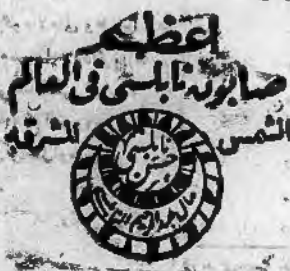 اعظم
صابون نابلسي في العالم
الشمس المشرقة
نابلسي
حسن